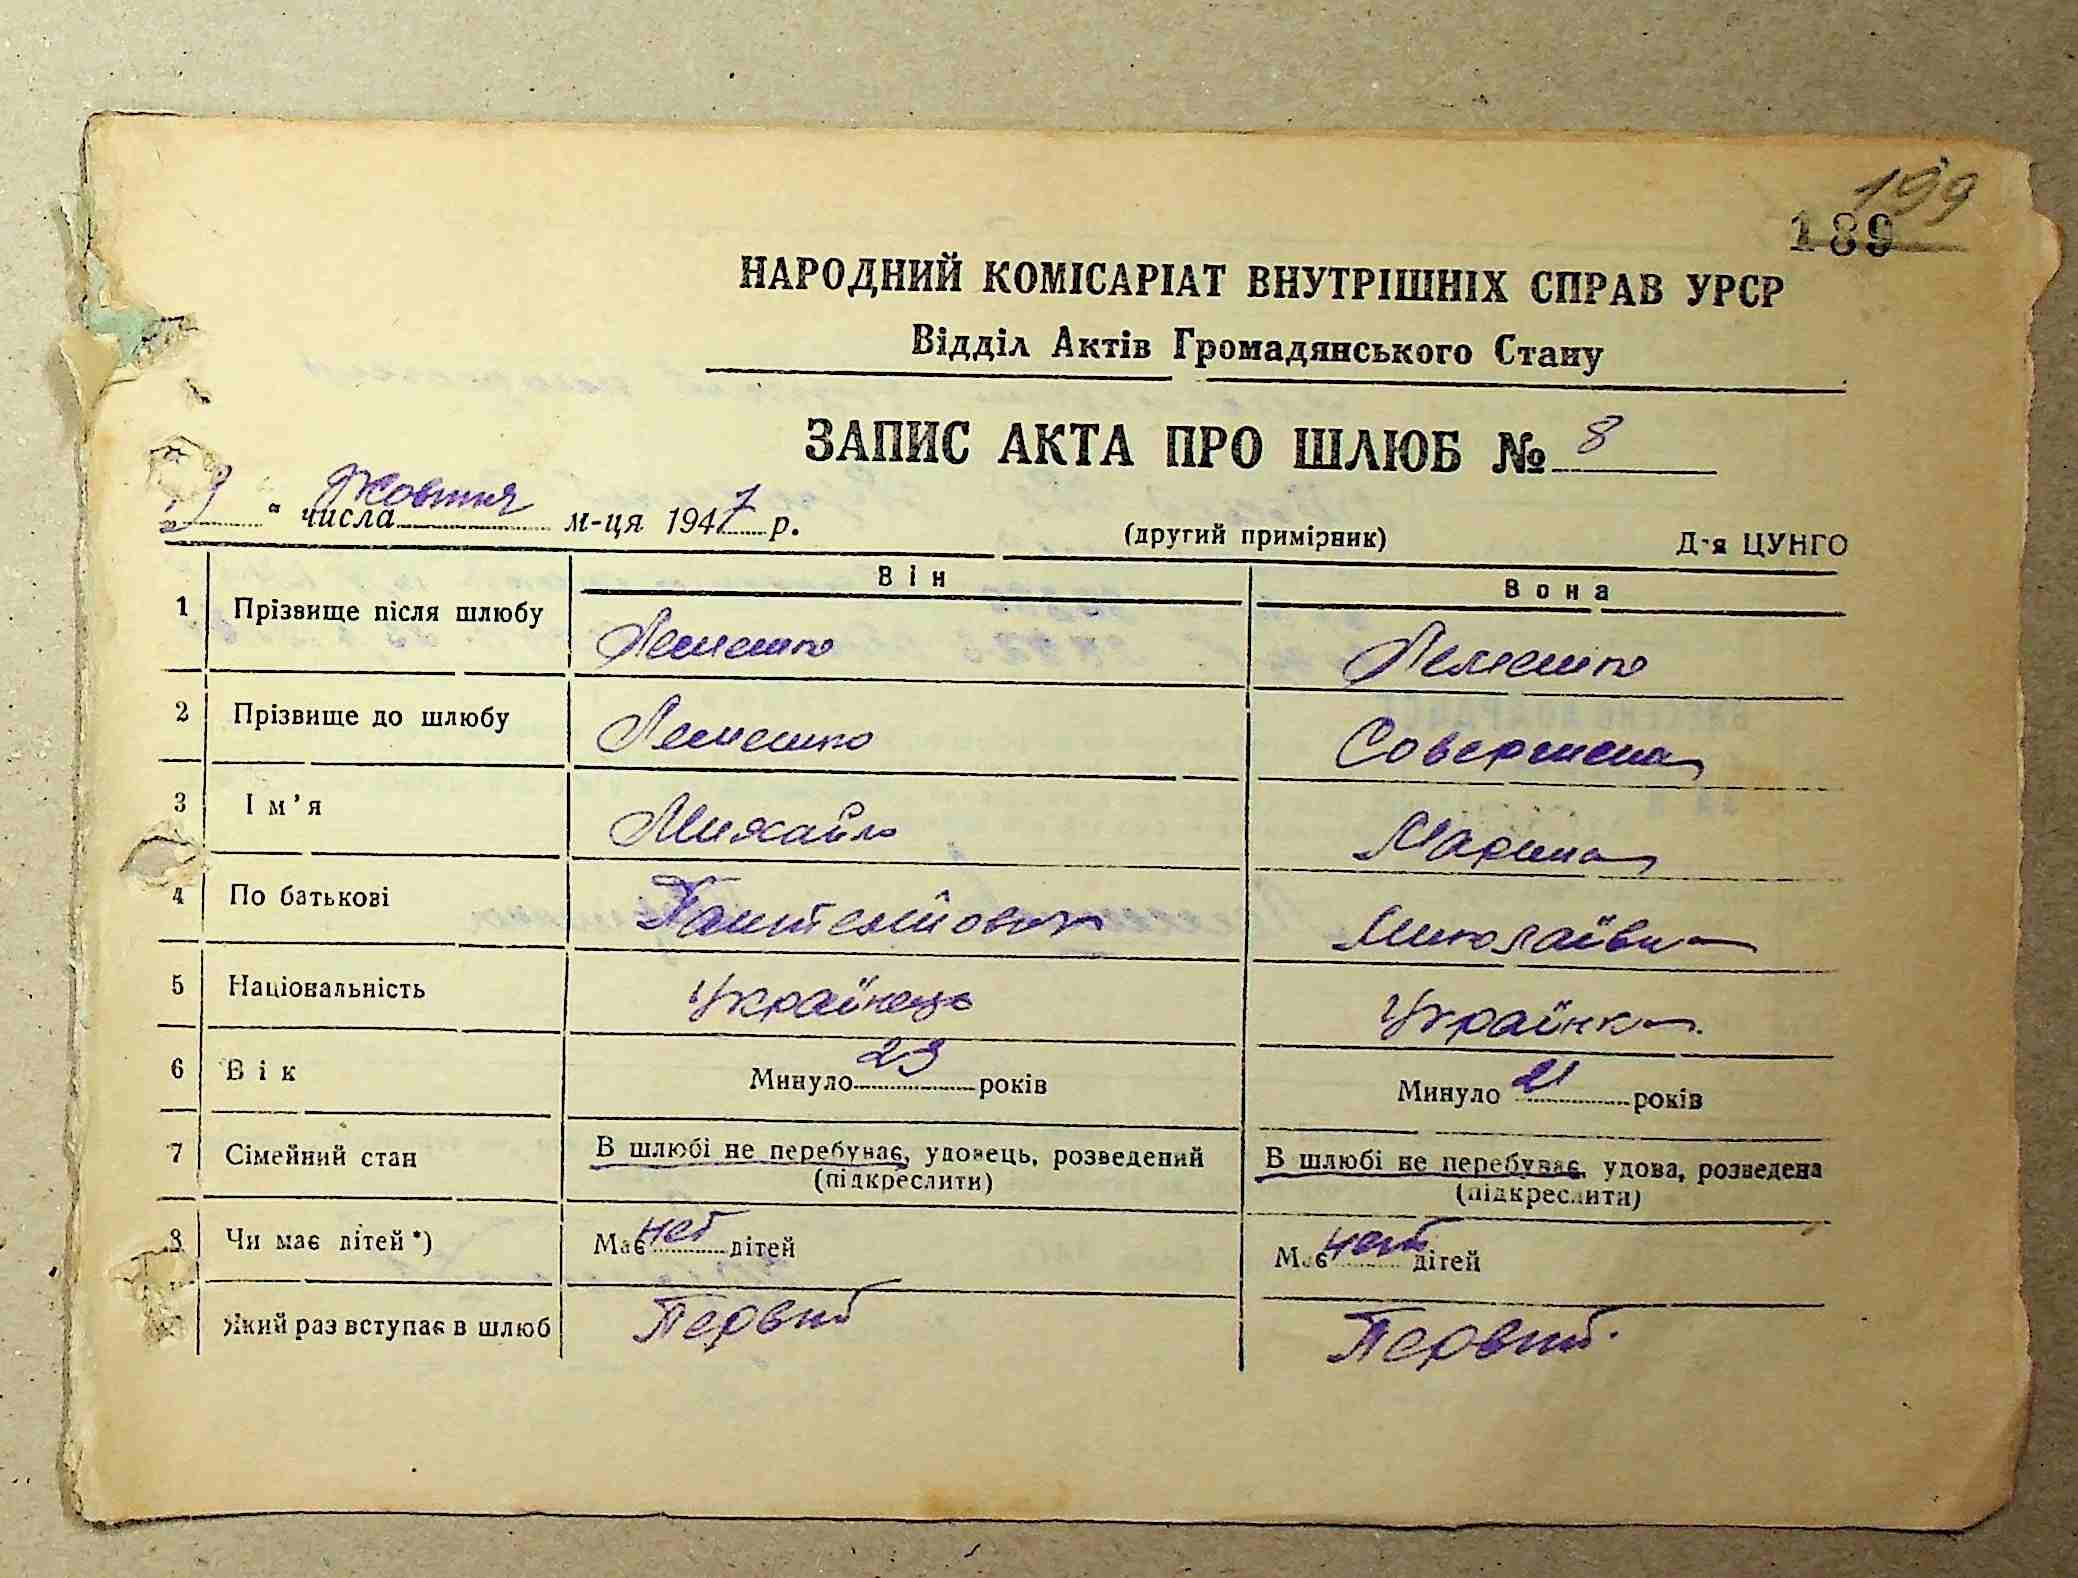 199
189
НАРОДНИЙ КОМІСАРІАТ ВНУТРІШНІХ СПРАВ УРСР
Відділ Актів Громадянського Стану
ЗАПИС АКТА ПРО ШЛЮБ № 8
9 " числа Жовтня м-ця 1947 р. (другий примірник) Д-я ЦУНГО
Він Вона
1 Прізвище після шлюбу Лемешко Лемешко
2 Прізвище до шлюбу Лемешко Совершена
3 Ім'я Михайло Марина
4 По батькові Пантелійович Миколаївна
5 Національність Українець Українка
6 Вік Минуло 23 років Минуло 21 років
7 Сімейний стан В шлюбі не перебуває, удовець, розведений В шлюбі не перебуває, удова, розведена
(підкреслити) (підкреслити)
8 Чи має дітей *) Має нет дітей Має нет дітей
Який раз вступає в шлюб Первий Первий